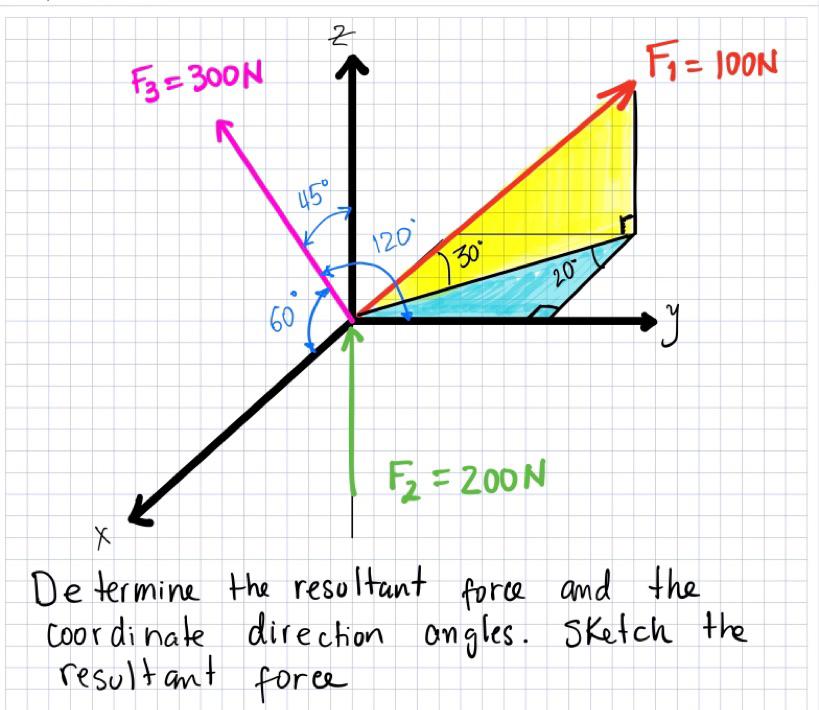 z
F₃ = 300N
F₁ = 100N
45°
120°
30°
20°
60°
y
F₂ = 200N
x
Determine the resultant force and the
coordinate direction angles. Sketch the
resultant force